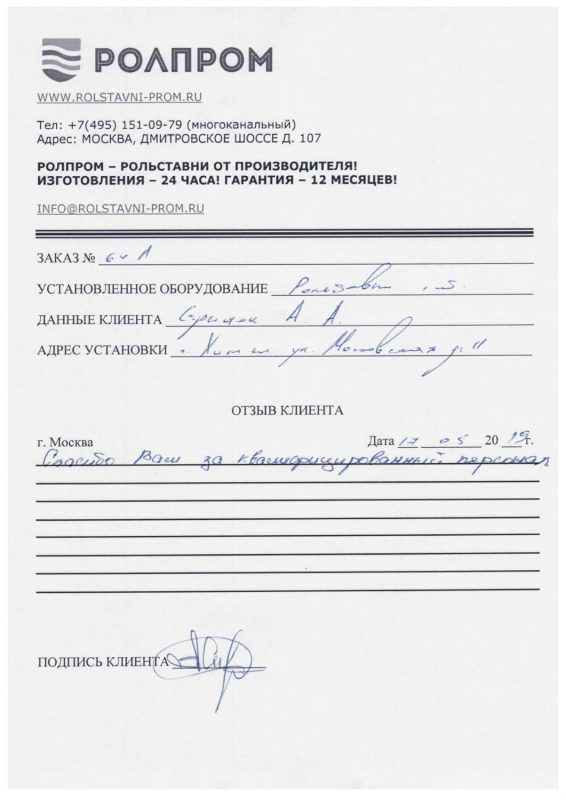 РОЛПРОМ
WWW.ROLSTAVNI-PROM.RU
Тел: +7(495) 151-09-79 (многоканальный)
Адрес: МОСКВА, ДМИТРОВСКОЕ ШОССЕ Д. 107
РОЛПРОМ – РОЛЬСТАВНИ ОТ ПРОИЗВОДИТЕЛЯ!
ИЗГОТОВЛЕНИЯ – 24 ЧАСА! ГАРАНТИЯ – 12 МЕСЯЦЕВ!
INFO@ROLSTAVNI-PROM.RU
ЗАКАЗ №
УСТАНОВЛЕННОЕ ОБОРУДОВАНИЕ Рольставни
ДАННЫЕ КЛИЕНТА А А.
АДРЕС УСТАНОВКИ г. Химки ул. Московская д. 11
ОТЗЫВ КЛИЕНТА
г. Москва Дата 17 05 2019г.
Спасибо Вам за квалифицированный персонал
ПОДПИСЬ КЛИЕНТА